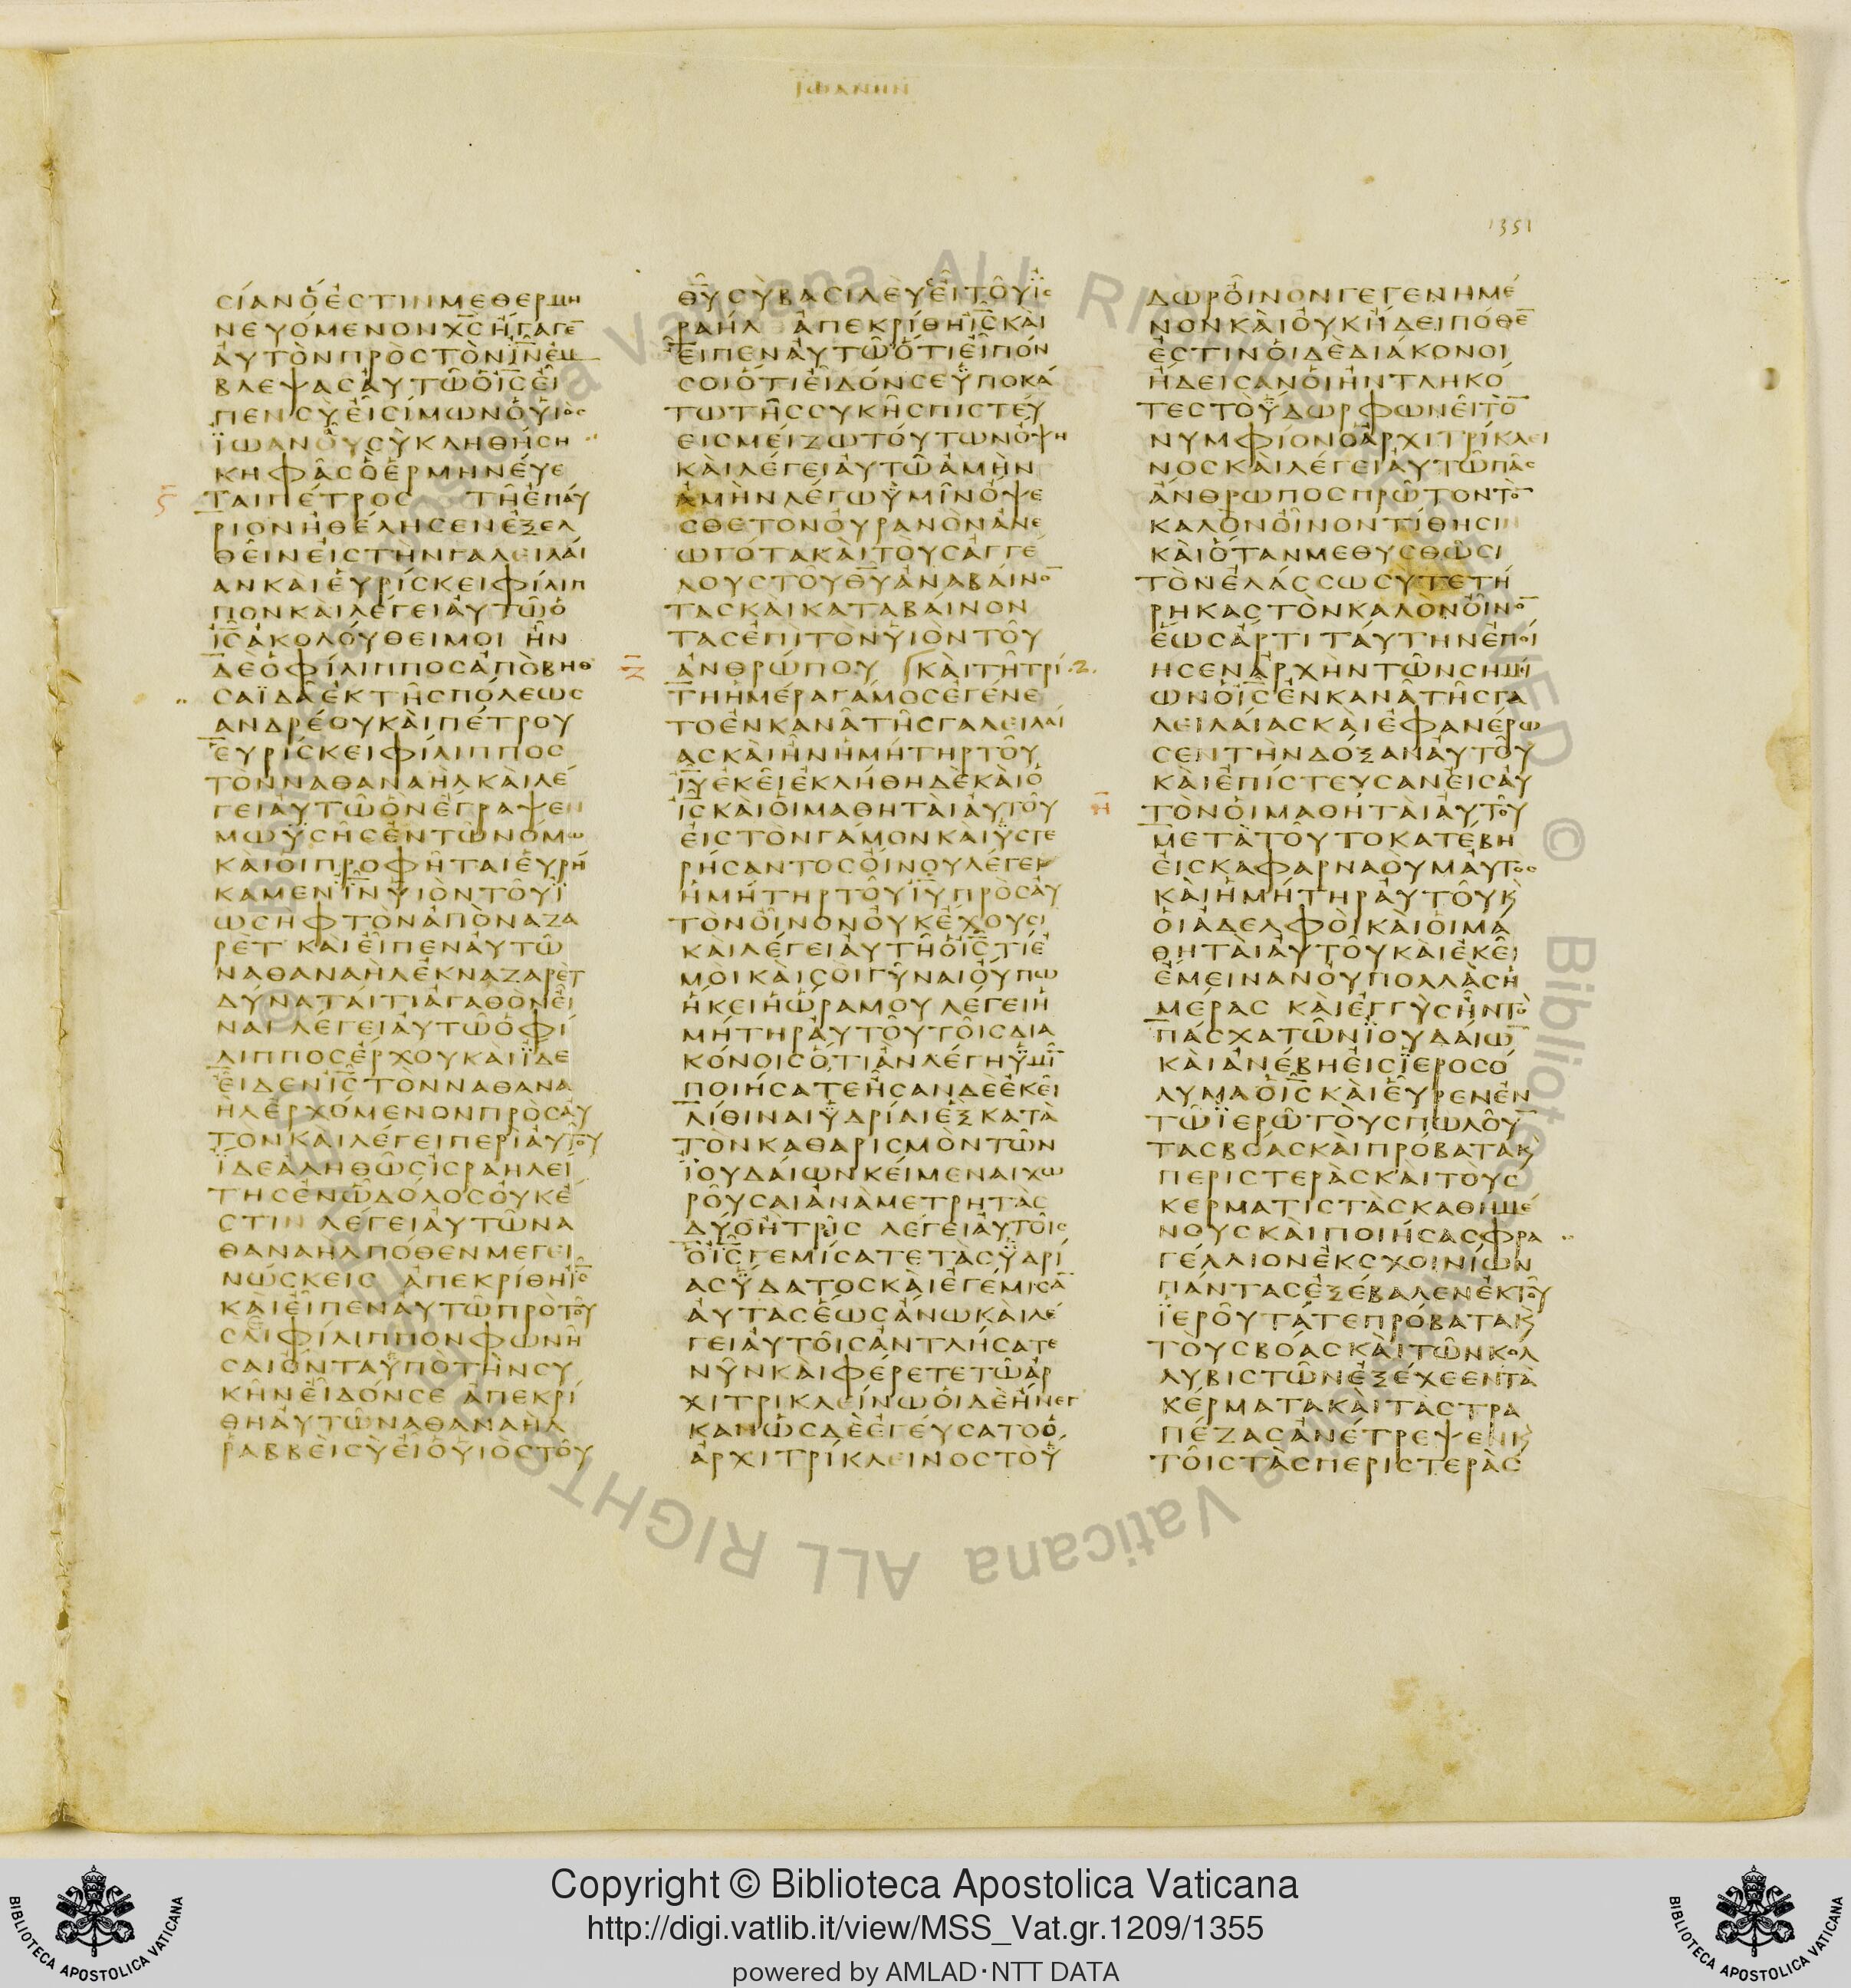 ΙΩΑΝΗΝ
1351
ϹΙΑΝΟΕϹΤΙΝΜΕΘΕΡΜΗ
ΝΕΥΟΜΕΝΟΝΧϹΗΓΑΓΕ̅
ΑΥΤΟΝΠΡΟϹΤΟΝΙΝΕΜ
ΒΛΕΨΑϹΑΥΤΩΟΙϹΕΙ
ΠΕΝϹΥΕΙϹΙΜΩΝΟΥΙΟϹ
ΪΩΑΝΟΥϹΥΚΛΗΘΗϹΗ
ΚΗΦΑϹΟΕΡΜΗΝΕΥΕ
ΤΑΙΠΕΤΡΟϹ ΤΗΕΠΑΥ
ΡΙΟΝΗΘΕΛΗϹΕΝΕΞΕΛ
ΘΕΙΝΕΙϹΤΗΝΓΑΛΕΙΛΑΙ
ΑΝΚΑΙΕΥΡΙϹΚΕΙΦΙΛΙΠ
ΠΟΝΚΑΙΛΕΓΕΙΑΥΤΩΟ
ΙϹΑΚΟΛΟΥΘΕΙΜΟΙ ΗΝ
ΔΕΟΦΙΛΙΠΠΟϹΑΠΟΒΗΘ
ϹΑΪΔΑΕΚΤΗϹΠΟΛΕΩϹ
ΑΝΔΡΕΟΥΚΑΙΠΕΤΡΟΥ
ΕΥΡΙϹΚΕΙΦΙΛΙΠΠΟϹ
ΤΟΝΝΑΘΑΝΑΗΛΚΑΙΛΕ
ΓΕΙΑΥΤΩΟΝΕΓΡΑΨΕΝ
ΜΩΫϹΗϹΕΝΤΩΝΟΜΩ
ΚΑΙΟΙΠΡΟΦΗΤΑΙΕΥΡΗ
ΚΑΜΕΝΙΝΥΙΟΝΤΟΥΪ
ΩϹΗΦΤΟΝΑΠΟΝΑΖΑ
ΡΕΤ ΚΑΙΕΙΠΕΝΑΥΤΩ
ΝΑΘΑΝΑΗΛΕΚΝΑΖΑΡΕΤ
ΔΥΝΑΤΑΙΤΙΑΓΑΘΟΝΕΙ
ΝΑΙ ΛΕΓΕΙΑΥΤΩΟΦΙ
ΛΙΠΠΟϹΕΡΧΟΥΚΑΙΪΔΕ
ΕΙΔΕΝΙϹΤΟΝΝΑΘΑΝΑ
ΗΛΕΡΧΟΜΕΝΟΝΠΡΟϹΑΥ
ΤΟΝΚΑΙΛΕΓΕΙΠΕΡΙΑΥΤΟΥ
ΪΔΕΑΛΗΘΩϹΙϹΡΑΗΛΕΙ
ΤΗϹΕΝΩΔΟΛΟϹΟΥΚΕ
ϹΤΙΝ ΛΕΓΕΙΑΥΤΩΝΑ
ΘΑΝΑΗΛΠΟΘΕΝΜΕΓΕΙ
ΝΩϹΚΕΙϹ ΑΠΕΚΡΙΘΗΙϹ
ΚΑΙΕΙΠΕΝΑΥΤΩΠΡΟΤΟΥ
ϹΕΦΙΛΙΠΠΟΝΦΩΝΗ
ϹΑΙΟΝΤΑΫΠΟΤΗΝϹΥ
ΚΗΝΕΙΔΟΝϹΕ ΑΠΕΚΡΙ
ΘΗΑΥΤΩΝΑΘΑΝΑΗΛ
ΡΑΒΒΕΙϹΥΕΙΟΥΙΟϹΤΟΥ
ΘΥϹΥΒΑϹΙΛΕΥϹΕΙΤΟΥΪϹ
ΡΑΗΛ ΑΠΕΚΡΙΘΗΙϹΚΑΙ
ΕΙΠΕΝΑΥΤΩΟΤΙΕΙΠΟΝ
ϹΟΙΟΤΙΕΙΔΟΝϹΕΫΠΟΚΑ
ΤΩΤΗϹϹΥΚΗϹΠΙϹΤΕΥ
ΕΙϹΜΕΙΖΩΤΟΥΤΩΝΟΨΗ
ΚΑΙΛΕΓΕΙΑΥΤΩΑΜΗΝ
ΑΜΗΝΛΕΓΩΫΜΙΝΟΨΕ
ϹΘΕΤΟΝΟΥΡΑΝΟΝΑΝΕ
ΩΓΟΤΑΚΑΙΤΟΥϹΑΓΓΕ
ΛΟΥϹΤΟΥΘΥΑΝΑΒΑΙΝΟ̅
ΤΑϹΚΑΙΚΑΤΑΒΑΙΝΟΝ
ΤΑϹΕΠΙΤΟΝΥΙΟΝΤΟΥ
ΑΝΘΡΩΠΟΥ ΚΑΙΤΗΤΡΙ 2.
ΤΗΗΜΕΡΑΓΑΜΟϹΕΓΕΝΕ
ΤΟΕΝΚΑΝΑΤΗϹΓΑΛΕΙΛΑΙ
ΑϹΚΑΙΗΝΗΜΗΤΗΡΤΟΥ
ΙΥΕΚΕΙΕΚΛΗΘΗΔΕΚΑΙΟ
ΙϹΚΑΙΟΙΜΑΘΗΤΑΙΑΥΤΟΥ
ΕΙϹΤΟΝΓΑΜΟΝΚΑΙΫϹΤΕ
ΡΗϹΑΝΤΟϹΟΙΝΟΥΛΕΓΕΙ
ΗΜΗΤΗΡΤΟΥΙΥΠΡΟϹΑΥ
ΤΟΝΟΙΝΟΝΟΥΚΕΧΟΥϹΙ
ΚΑΙΛΕΓΕΙΑΥΤΗΟΙϹΤΙΕ
ΜΟΙΚΑΙϹΟΙΓΥΝΑΙΟΥΠΩ
ΗΚΕΙΗΩΡΑΜΟΥ ΛΕΓΕΙΗ
ΜΗΤΗΡΑΥΤΟΥΤΟΙϹΔΙΑ
ΚΟΝΟΙϹΟΤΙΑΝΛΕΓΗΫΜΙ̅
ΠΟΙΗϹΑΤΕΗϹΑΝΔΕΕΚΕΙ
ΛΙΘΙΝΑΙΫΔΡΙΑΙΕΞΚΑΤΑ
ΤΟΝΚΑΘΑΡΙϹΜΟΝΤΩΝ
ΪΟΥΔΑΙΩΝΚΕΙΜΕΝΑΙΧΩ
ΡΟΥϹΑΙΑΝΑΜΕΤΡΗΤΑϹ
ΔΥΟΗΤΡΙϹ ΛΕΓΕΙΑΥΤΟΙϹ
ΟΙϹΓΕΜΙϹΑΤΕΤΑϹΫΔΡΙ
ΑϹΫΔΑΤΟϹΚΑΙΕΓΕΜΙϹΑ̅
ΑΥΤΑϹΕΩϹΑΝΩΚΑΙΛΕ
ΓΕΙΑΥΤΟΙϹΑΝΤΛΗϹΑΤΕ
ΝΥΝΚΑΙΦΕΡΕΤΕΤΩΑΡ
ΧΙΤΡΙΚΛΕΙΝΩΟΙΔΕΗΝΕΓ
ΚΑΝΩϹΔΕΕΓΕΥϹΑΤΟΟ
ΑΡΧΙΤΡΙΚΛΕΙΝΟϹΤΟΫ
ΔΩΡΟΙΝΟΝΓΕΓΕΝΗΜΕ
ΝΟΝΚΑΙΟΥΚΗΔΕΙΠΟΘΕ̅
ΕϹΤΙΝΟΙΔΕΔΙΑΚΟΝΟΙ
ΗΔΕΙϹΑΝΟΙΗΝΤΛΗΚΟ
ΤΕϹΤΟΫΔΩΡΦΩΝΕΙΤΟ̅
ΝΥΜΦΙΟΝΟΑΡΧΙΤΡΙΚΛΕΙ
ΝΟϹΚΑΙΛΕΓΕΙΑΥΤΩΠΑϹ
ΑΝΘΡΩΠΟϹΠΡΩΤΟΝΤΟ̅
ΚΑΛΟΝΟΙΝΟΝΤΙΘΗϹΙΝ
ΚΑΙΟΤΑΝΜΕΘΥϹΘΩϹΙ
ΤΟΝΕΛΑϹϹΩϹΥΤΕΤΗ
ΡΗΚΑϹΤΟΝΚΑΛΟΝΟΙΝΟ̅
ΕΩϹΑΡΤΙ ΤΑΥΤΗΝΕΠΟΙ
ΗϹΕΝΑΡΧΗΝΤΩΝϹΗΜΙ
ΩΝΟΙϹΕΝΚΑΝΑΤΗϹΓΑ
ΛΕΙΛΑΙΑϹΚΑΙΕΦΑΝΕΡΩ
ϹΕΝΤΗΝΔΟΞΑΝΑΥΤΟΥ
ΚΑΙΕΠΙϹΤΕΥϹΑΝΕΙϹΑΥ
ΤΟΝΟΙΜΑΘΗΤΑΙΑΥΤΟΥ
ΜΕΤΑΤΟΥΤΟΚΑΤΕΒΗ
ΕΙϹΚΑΦΑΡΝΑΟΥΜΑΥΤΟϹ
ΚΑΙΗΜΗΤΗΡΑΥΤΟΥϏ
ΟΙΑΔΕΛΦΟΙΚΑΙΟΙΜΑ
ΘΗΤΑΙΑΥΤΟΥΚΑΙΕΚΕΙ
ΕΜΕΙΝΑΝΟΥΠΟΛΛΑϹΗ
ΜΕΡΑϹ ΚΑΙΕΓΓΥϹΗΝΤΟ
ΠΑϹΧΑΤΩΝΪΟΥΔΑΙΩ̅
ΚΑΙΑΝΕΒΗΕΙϹΪΕΡΟϹΟ
ΛΥΜΑΟΙϹΚΑΙΕΥΡΕΝΕΝ
ΤΩΪΕΡΩΤΟΥϹΠΩΛΟΥ̅
ΤΑϹΒΟΑϹΚΑΙΠΡΟΒΑΤΑϏ
ΠΕΡΙϹΤΕΡΑϹΚΑΙΤΟΥϹ
ΚΕΡΜΑΤΙϹΤΑϹΚΑΘΗΜΕ
ΝΟΥϹΚΑΙΠΟΙΗϹΑϹΦΡΑ
ΓΕΛΛΙΟΝΕΚϹΧΟΙΝΙΩΝ
ΠΑΝΤΑϹΕΞΕΒΑΛΕΝΕΚΤΟΥ
ΪΕΡΟΥΤΑΤΕΠΡΟΒΑΤΑϏ
ΤΟΥϹΒΟΑϹΚΑΙΤΩΝΚΟΛ
ΛΥΒΙϹΤΩΝΕΞΕΧΕΕΝΤΑ
ΚΕΡΜΑΤΑΚΑΙΤΑϹΤΡΑ
ΠΕΖΑϹΑΝΕΤΡΕΨΕΝϏ
ΤΟΙϹΤΑϹΠΕΡΙϹΤΕΡΑϹ
© Biblioteca Apostolica Vaticana ALL RIGHTS RESERVED © Biblioteca Apostolica Vaticana ALL RIGHTS RESERVED
Copyright © Biblioteca Apostolica Vaticana
http://digi.vatlib.it/view/MSS_Vat.gr.1209/1355
powered by AMLAD·NTT DATA
BIBLIOTECA APOSTOLICA VATICANA
BIBLIOTECA APOSTOLICA VATICANA